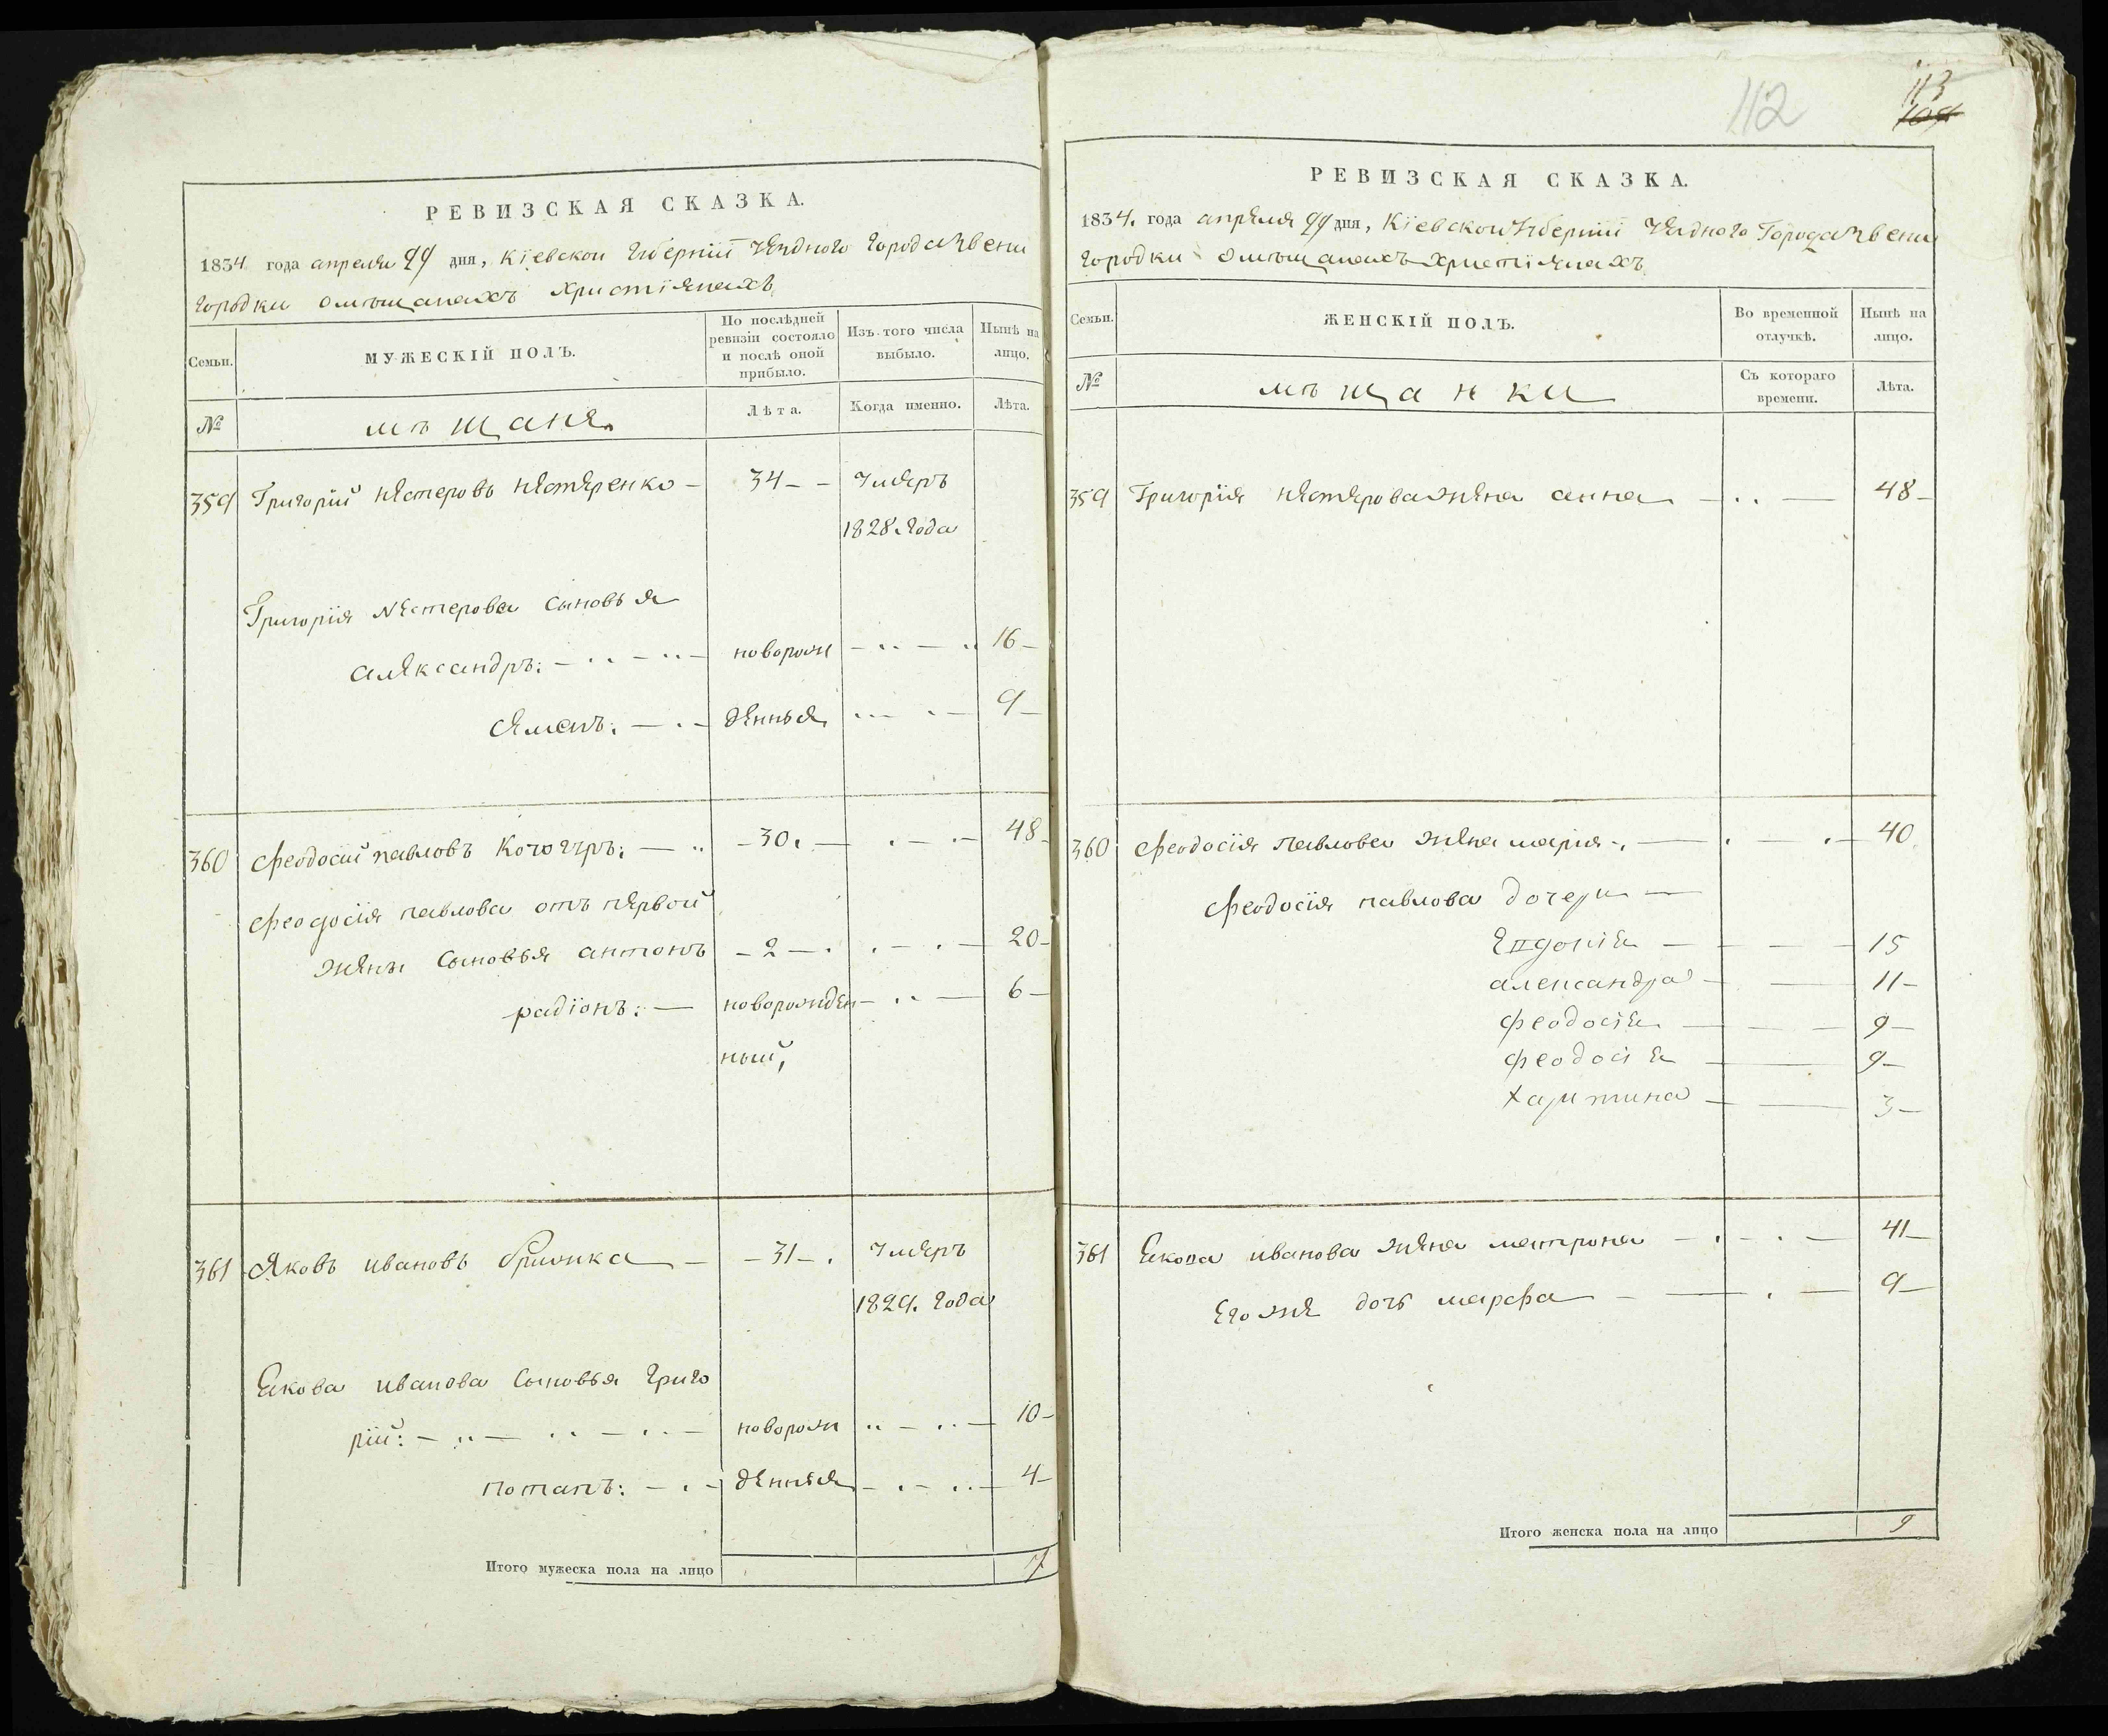 РЕВИЗСКАЯ СКАЗКА.
1834 года апреля дня, Кіевской Губерніи уезднаго города Звени
городки омѣщанахъ христіянахъ
Семьи.
МУЖЕСКІЙ ПОЛЪ.
По послѣдней ревизіи состояло и послѣ оной прибыло.
Изъ того числа выбыло.
Нынѣ на лицо.
№
мѣщане
Лѣта.
Когда именно.
Лѣта.
359 Григорій нестеровъ нестеренко – 34 – – умеръ
1828 года
Григорія нестерова сыновья
александръ: новорож 16 –
семенъ: денныя 9 –
360 Феодосій павловъ – 30. 48 –
Феодосія павлова отъ первой
жены сыновья антонъ – 2 – 20 –
радіонъ: новорожден 6 –
ный,
361 Яковъ ивановъ – 31 – умеръ
1829. года
Якова иванова сыновья григо
рій: новорож 10 –
потапъ: денныя 4 –
Итого мужеска пола на лицо 7
112
113
104
РЕВИЗСКАЯ СКАЗКА.
1834. года апреля дня, Кіевской Губерніи уезднаго Города Звени
городки омѣщанахъ христіянахъ
Семьи.
ЖЕНСКІЙ ПОЛЪ.
Во временной отлучкѣ.
Нынѣ на лицо.
№
мѣщанки
Съ котораго времени.
Лѣта.
359 Григорія нестерова жена анна 48 –
360 Феодосія павлова жена марія 40
Феодосія павлова дочери –
15
александра 11 –
феодосія 9 –
феодосія 9 –
харитина 3 –
361 Якова иванова жена матрона 41 –
Его же дочь марфа 9 –
Итого женска пола на лицо 9